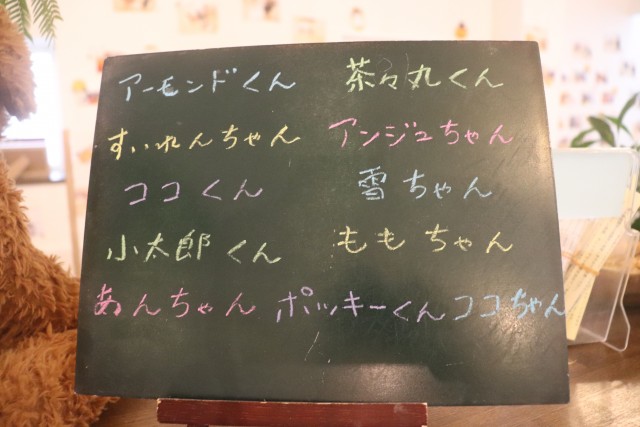 アーモンドくん 茶々丸くん
すいれんちゃん アンジュちゃん
ココくん 雪ちゃん
小太郎くん ももちゃん
あんちゃん ポッキーくん ココちゃん